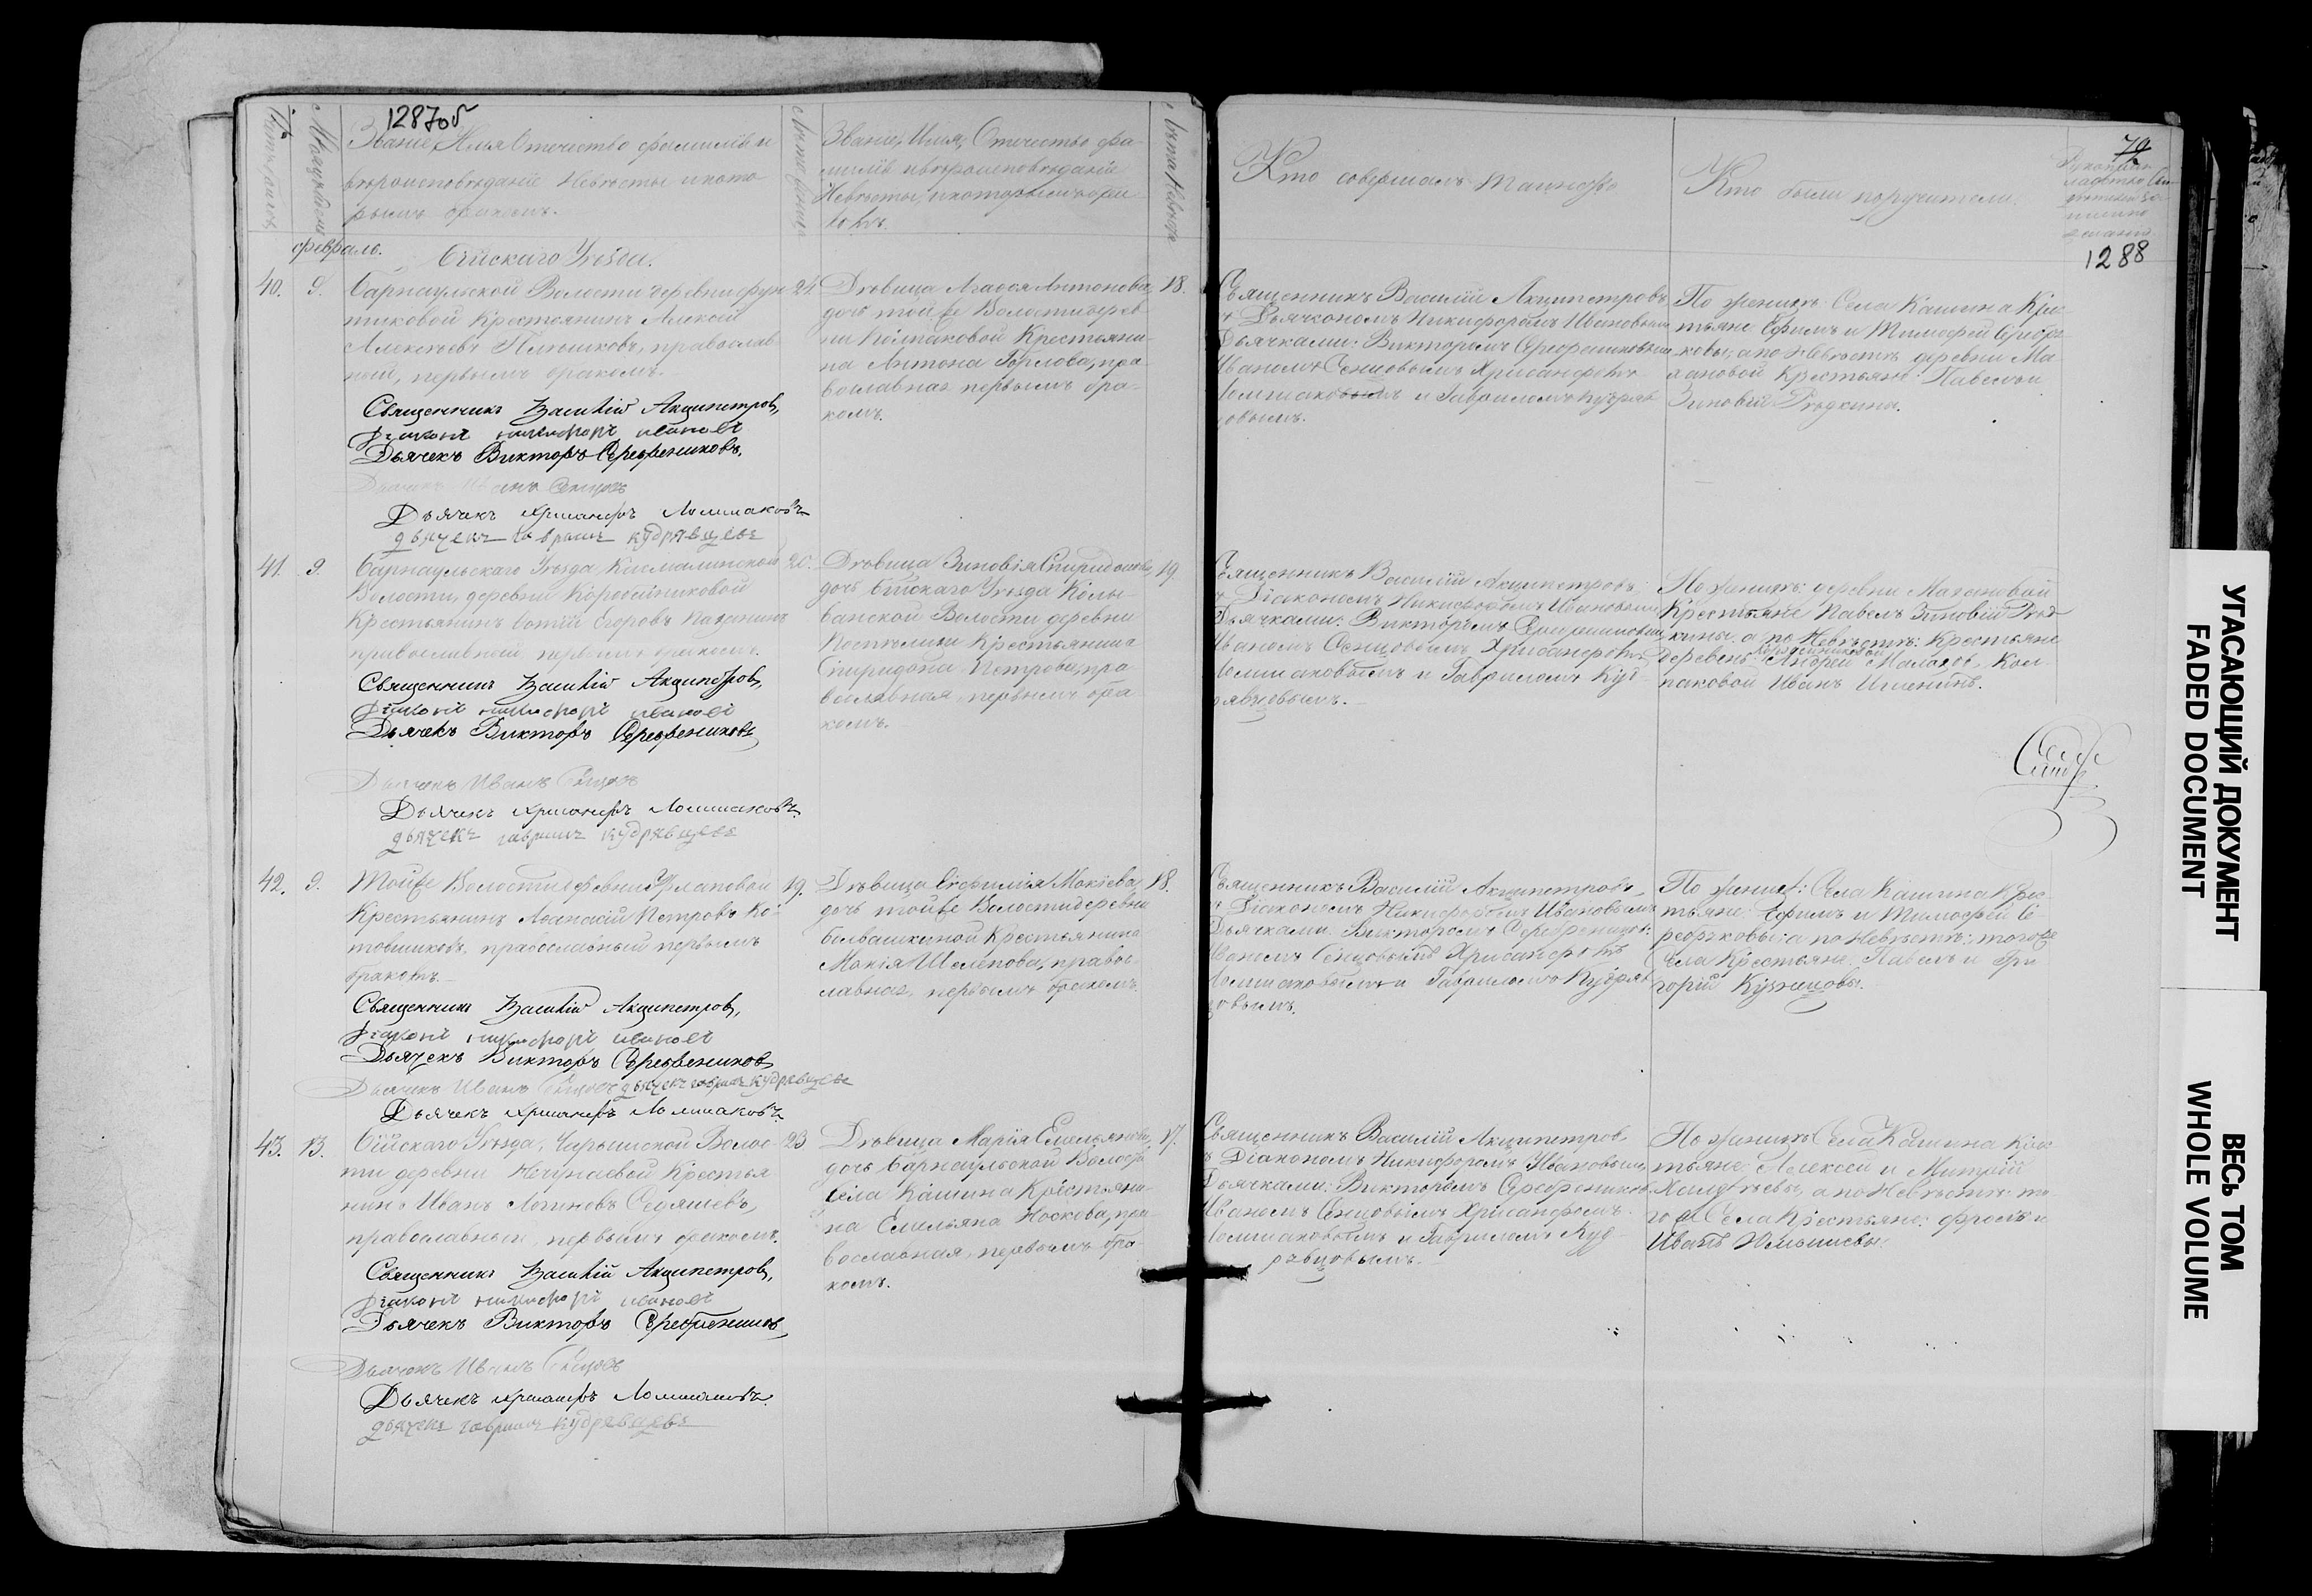 1287об
Званіе, Имя Отечество фамиліи и
вероисповѣданіе Невѣсты и кото-
рымъ бракомъ.
Званіе, Имя, Отечество фа-
миліѣ и вѣроисповѣданіе
Невѣсты, и которымъ бра-
комъ.
Лѣта невѣсты
Кто совершалъ таинство
Кто были поручители.
79
1288
февраль.
Бійскаго Уѣзда.
40.
9.
Барнаульской Волости деревни фун
тиковой Крестьянинъ Алексей
Алексѣевъ, православ-
ный, первымъ бракомъ.
Священникъ Василій Акципетровъ,
Діаконъ никифоръ ивановъ
Дьячекъ Викторъ Серебрениковъ.
Дьячекъ Иванъ Сенцовъ
Дьячекъ хрисанфъ Ломшаковъ
дьячекъ гаврилъ кудрявцевъ
21.
Дѣвица Агафья Антонова,
дочь тойже Волости дерев-
ни Колпаковой Крестьяни-
на Антона Горлова, пра-
вославная первымъ бра-
комъ.
18.
Священникъ Василій Акципетровъ
съ Дьякономъ Никифоромъ Ивановымъ
Дьячками: Викторомъ Серебрениковымъ
Иваномъ Сенцовымъ Хрисанфомъ
Ломшаковымъ и Гавриломъ Кудряв
цовымъ.
По женихѣ: Села Кашина Крес
тьяне Ефимъ и Тимофей Серебр
яковы; а по Невѣстѣ деревни Ма-
хановой Крестьяне: Павелъ и
Зиновій Рѣдкины.
41.
9.
Барнаульскаго Уѣзда Касмалинской
Волости, деревни Коробейниковой
Крестьянинъ Фотій Егоровъ
православный первымъ бракомъ.
Священникъ Василій Акципетровъ,
Діаконъ никифоръ ивановъ
Дьячекъ Викторъ Серебрениковъ
Дьячекъ Иванъ Сенцовъ
Дьячекъ хрисанфъ Ломшаковъ
дьячекъ гаврилъ кудрявцевъ
20.
Дѣвица Зиновія Спиридонова,
дочь Бійскаго Уѣзда Колы-
ванской Волости деревни
Крестьянина
Спиридона Петрова, пра
вославная, первымъ бра
комъ.
19.
Священникъ Василій Акципетровъ
съ Діакономъ Никифоромъ Ивановымъ
Дьячками: Викторомъ Серебрениковымъ
Иваномъ Сенцовымъ Хрисанфомъ
Ломшаковымъ и Гавриломъ Куд-
рявцовымъ.
По женихѣ: деревни Махановой
Крестьяне Павелъ Зиновій Рѣд
кины. а по Невѣстѣ: Крестьяне
Коробейниковой
деревень: Андрей Малаховъ, Кол
паковой Иванъ.
42.
9.
Тойже Волости деревни
Крестьянинъ Афанасій Петровъ Ко-
товщиковъ, православный первымъ
бракомъ.
Священникъ Василій Акципетровъ,
Діаконъ никифоръ ивановъ
Дьячекъ Викторъ Серебрениковъ
Дьячекъ Иванъ Сенцовъ дьячекъ гаврилъ кудрявцевъ
Дьячекъ хрисанфъ Ломшаковъ
19.
Дѣвица Евфимія Мокіева,
дочь тойже Волости деревни
Болвашкиной Крестьянина
Мокія Шелепова, право-
славная, первымъ бракомъ.
18.
Священникъ Василій Акципетровъ,
съ Діакономъ Никифоромъ Ивановымъ
Дьячками Викторомъ Серебреников:
Иваномъ Сенцовымъ Хрисанфомъ
Ломшаковымъ и Гавриломъ Кудряв
цовымъ.
По женихѣ: Села Кашина Крес-
тьяне Ефимъ и Тимофей Се-
ребряковы: а по Невѣстѣ: тогоже
Села Крестьяне. Павелъ и Гри
горій Кузнецовы.
43.
13.
Бійскаго Уѣзда, Чарышской Волос-
ти деревни Нечунаевой Крестья
нинъ Иванъ Логиновъ Седяшевъ,
православный, первымъ бракомъ.
Священникъ Василій Акципетровъ,
Діаконъ никифоръ ивановъ
Дьячекъ Викторъ Серебрениковъ
Дьячекъ Иванъ Сенцовъ
Дьячекъ хрисанфъ Ломшаковъ.
дьячекъ гаврилъ кудрявцевъ
23
Дѣвица Марія Емельянова,
дочь Барнаульской Волости
Села Кашина Крестьяни-
на Емельяна Носкова, пра-
вославная, первымъ бра-
комъ.
17.
Священникъ Василій Акципетровъ
съ Діакономъ Никифоромъ Ивановымъ
Дьячками: Викторомъ Серебреников
Иваномъ Сенцовымъ Хрисанфомъ
Ломшаковымъ и Гавриломъ Куд-
рявцовымъ.
По женихѣ Села Кашина Крес
тьяне: Алексей и Митрій
а по Невѣстѣ: то
го же Села Крестьяне: фролъ и
Иванъ
УГАСАЮЩИЙ ДОКУМЕНТ
FADED DOCUMENT
ВЕСЬ ТОМ
WHOLE VOLUME